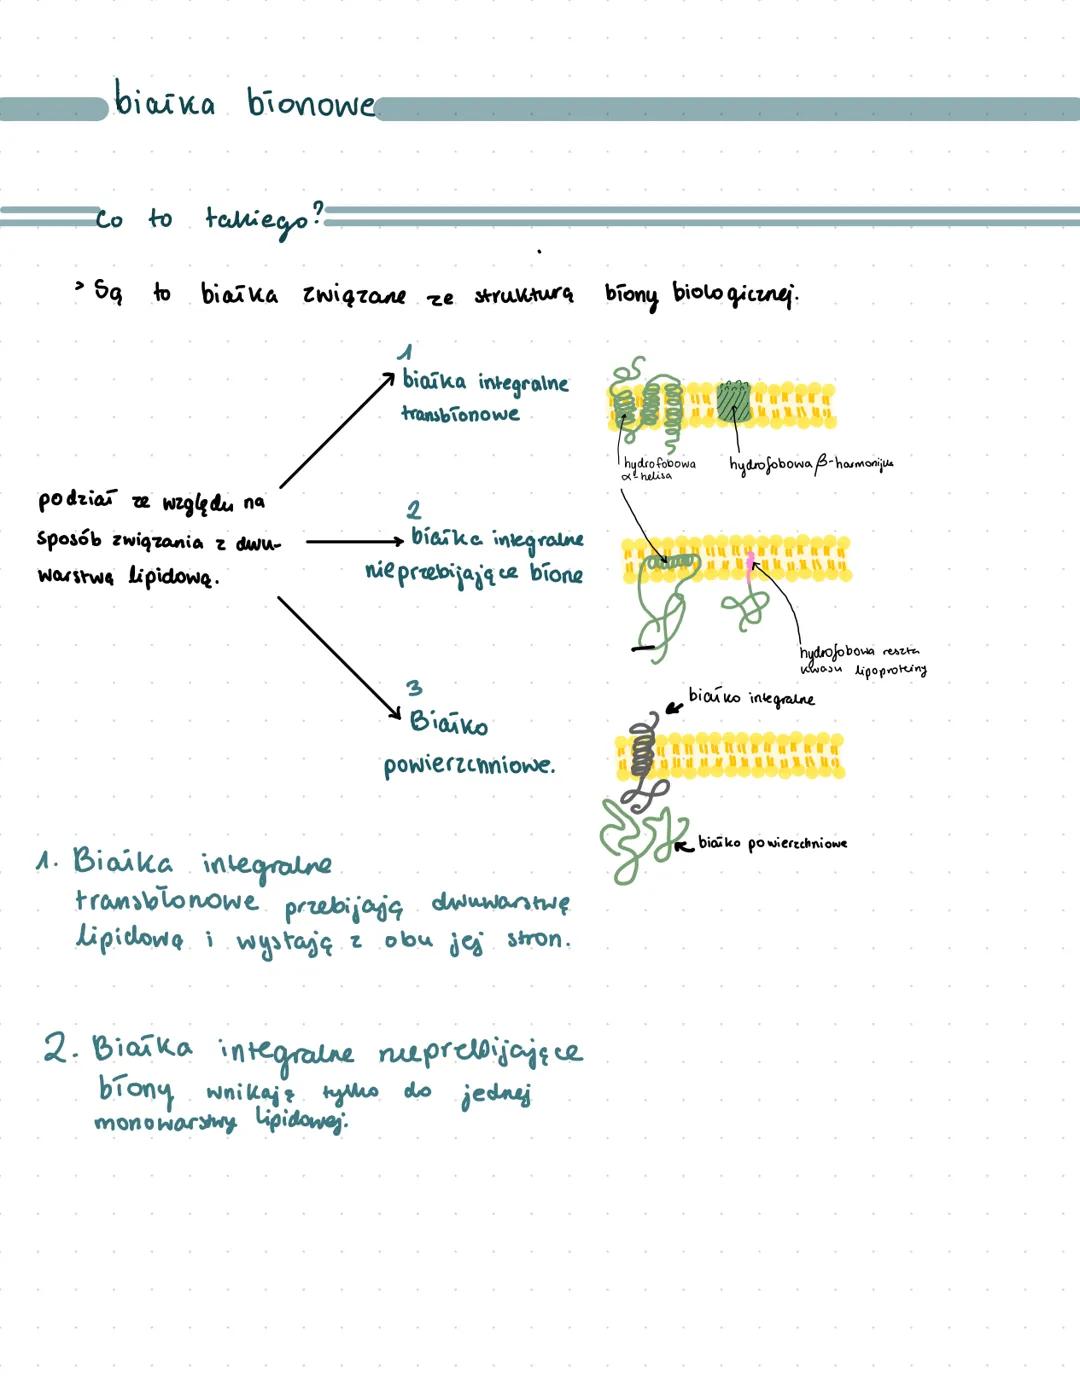 białka błonowe
Co to takiego?
> Są to białka związane ze strukturą błony biologicznej.
podział ze względu na
sposób związania z dwu-
warstwą lipidową.
1
białka integralne
transbłonowe
2
białka integralne
nieprzebijające błonę
3
Białko
powierzchniowe.
hydrofobowa
α-helisa
hydrofobowa β-harmonijka
hydrofobowa reszta
kwasu lipoproteiny
białko integralne
białko powierzchniowe
1. Białka integralne
transbłonowe przebijają dwuwarstwę
lipidową i wystają z obu jej stron.
2. Białka integralne nieprzebijające
błony wnikają tylko do jednej
monowarstwy lipidowej.